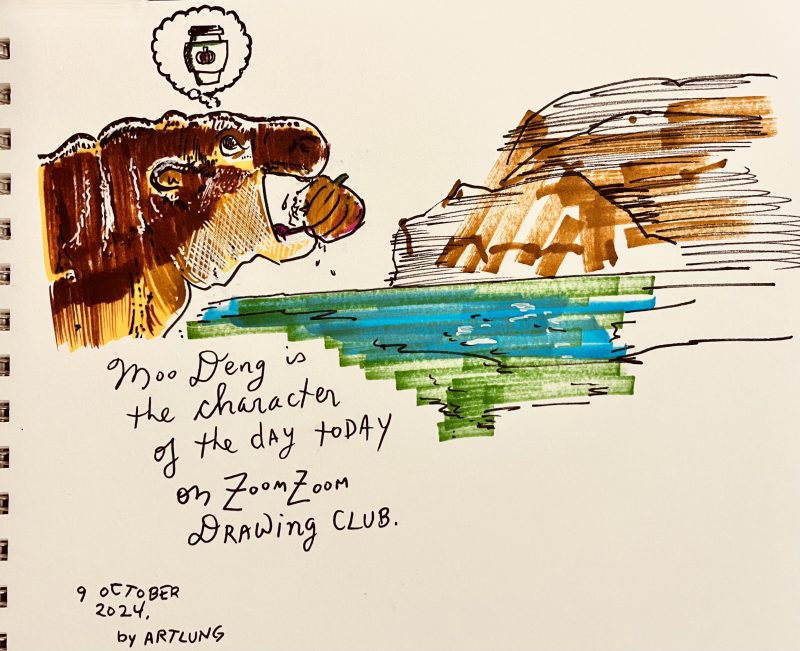 Moo Deng is
the character
of the day today
on ZoomZoom
Drawing CLUB.
9 OCTOBER
2024.
by ARTLUNG